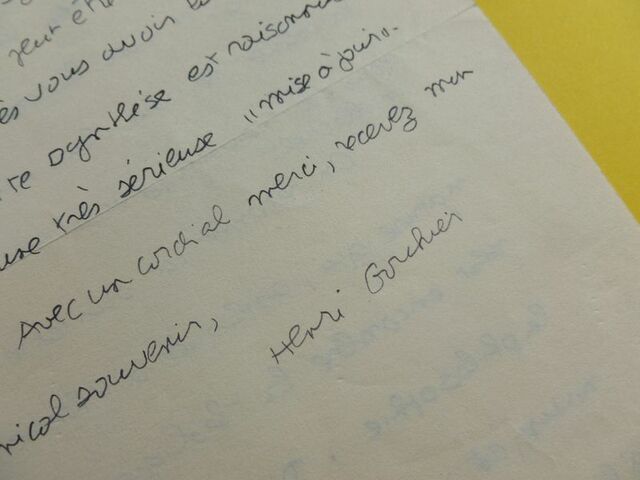 peut être
vous avoir
synthèse est raisonna
une très sérieuse "mise à jour".
Avec un cordial merci, recevez mon
mical souvenir,
Henri Gouhier